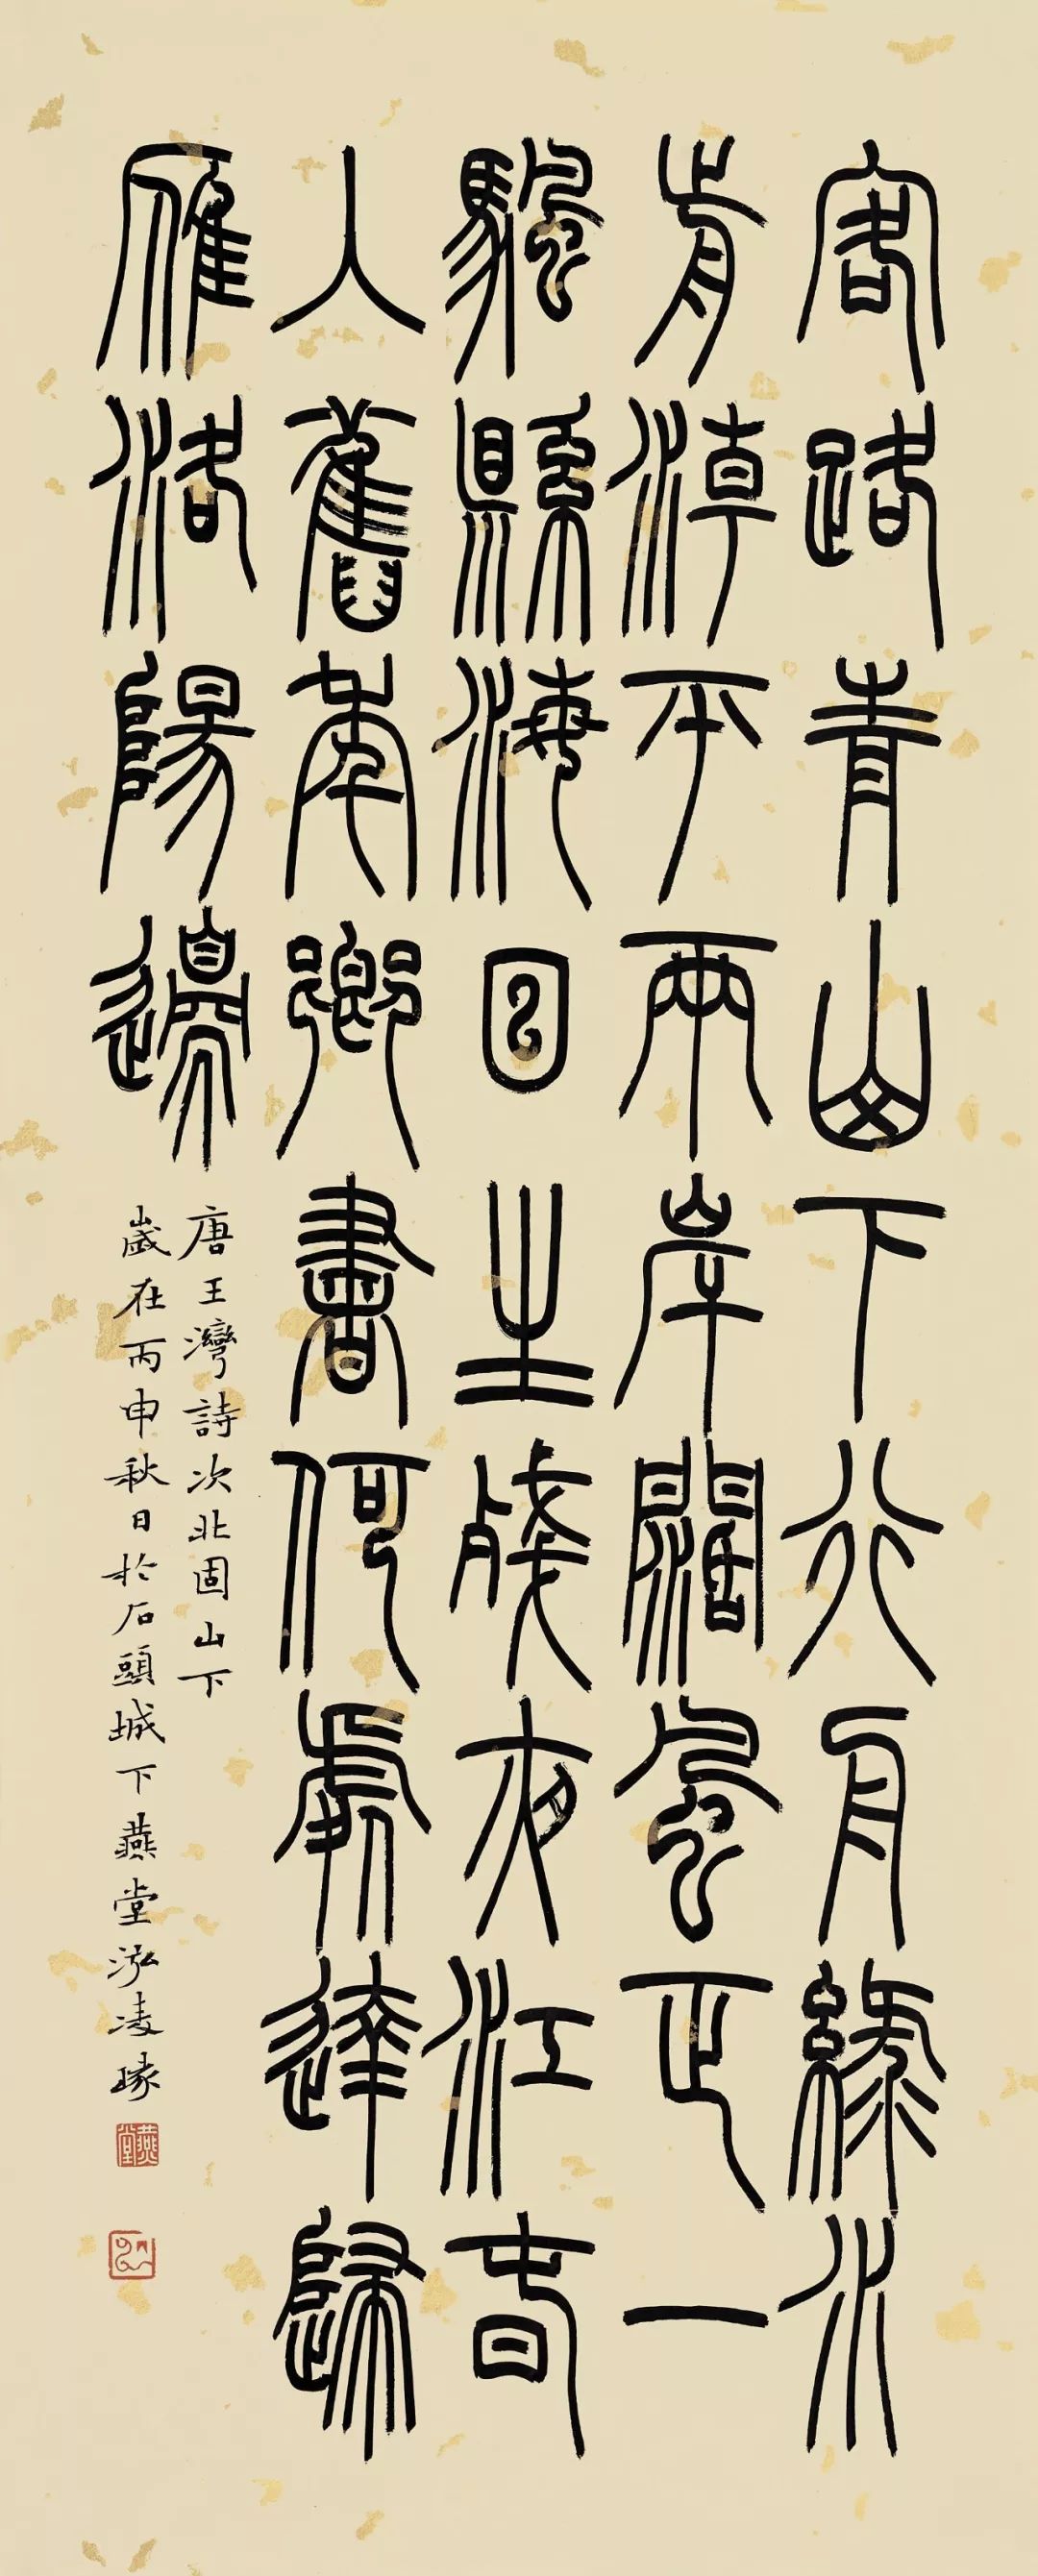 客路青山下行舟綠水
前潮平兩岸闊風正一
颿縣海日生殘夜江春
入舊年鄉書何處達歸
雁洛陽邊
唐王灣詩次北固山下
歲在丙申秋日於石頭城下燕堂泓凌
燕堂